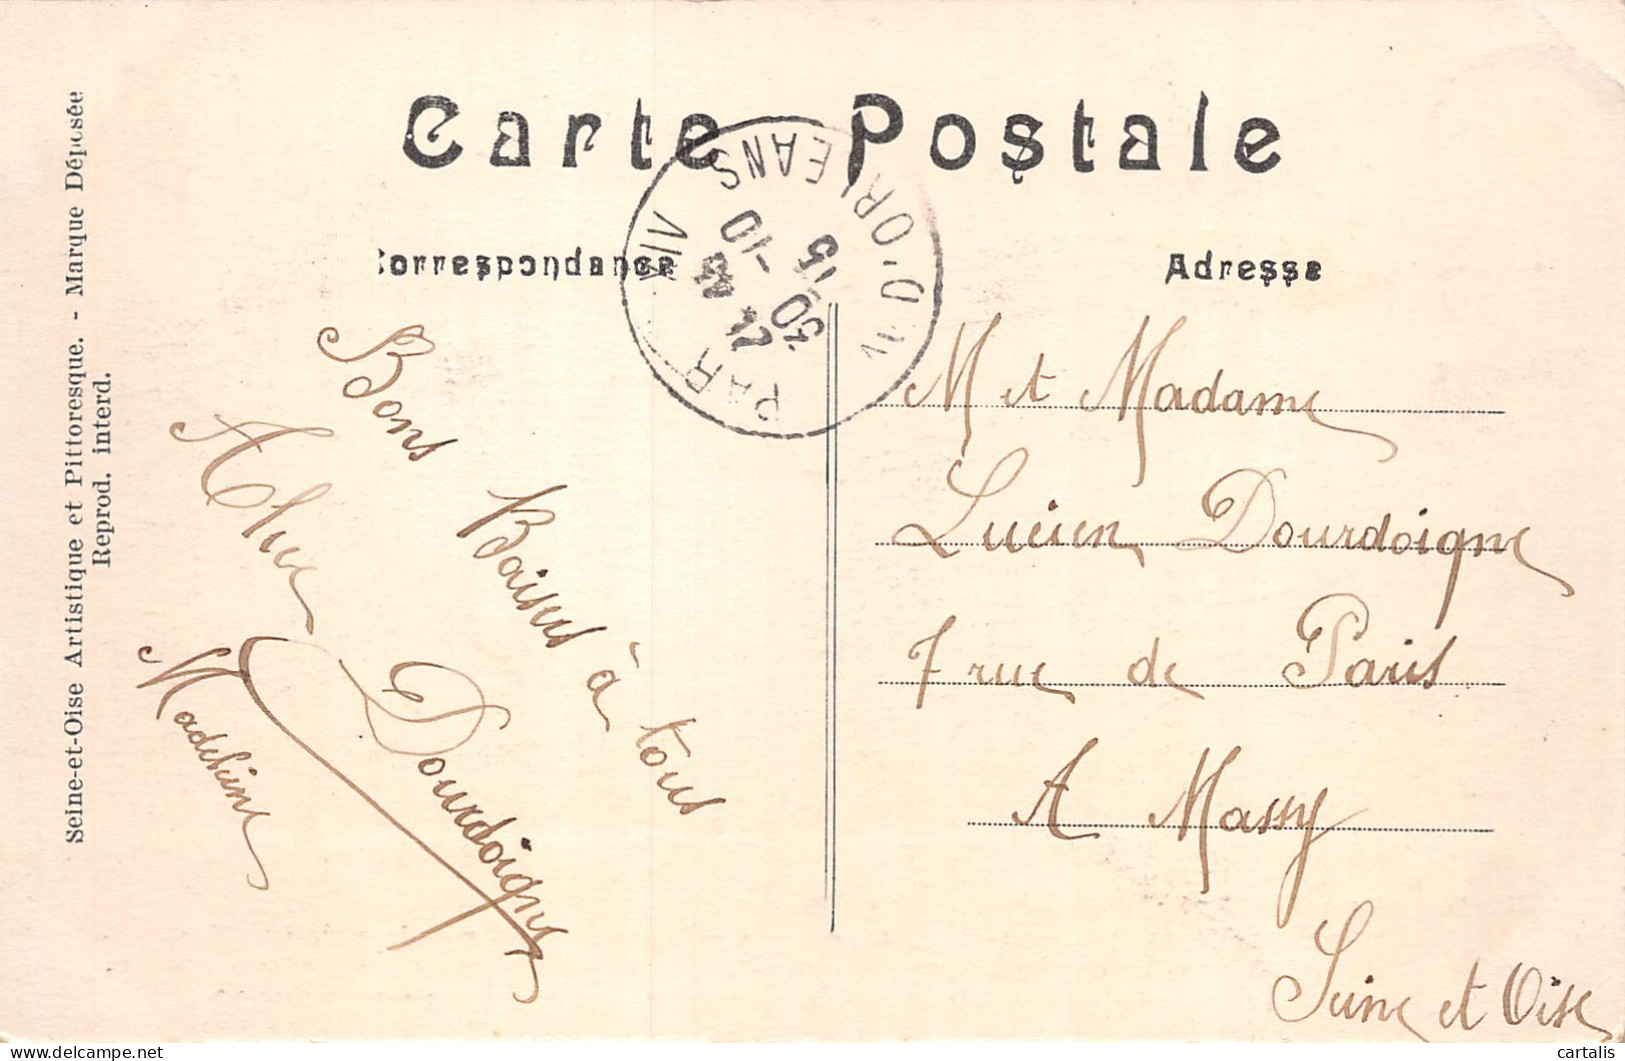 Carte Postale
Correspondance
Adresse
Seine-et-Oise Artistique et Pittoresque. - Marque Déposée
Reprod. interd.
PARIS XIV
AV. D'ORLEANS
30-10
15
Bons Baisers à tous
Dourdoigne
Madeleine
M et Madame
Lucien Dourdoigne
7 rue de Paris
A Massy
Seine et Oise
cartalis